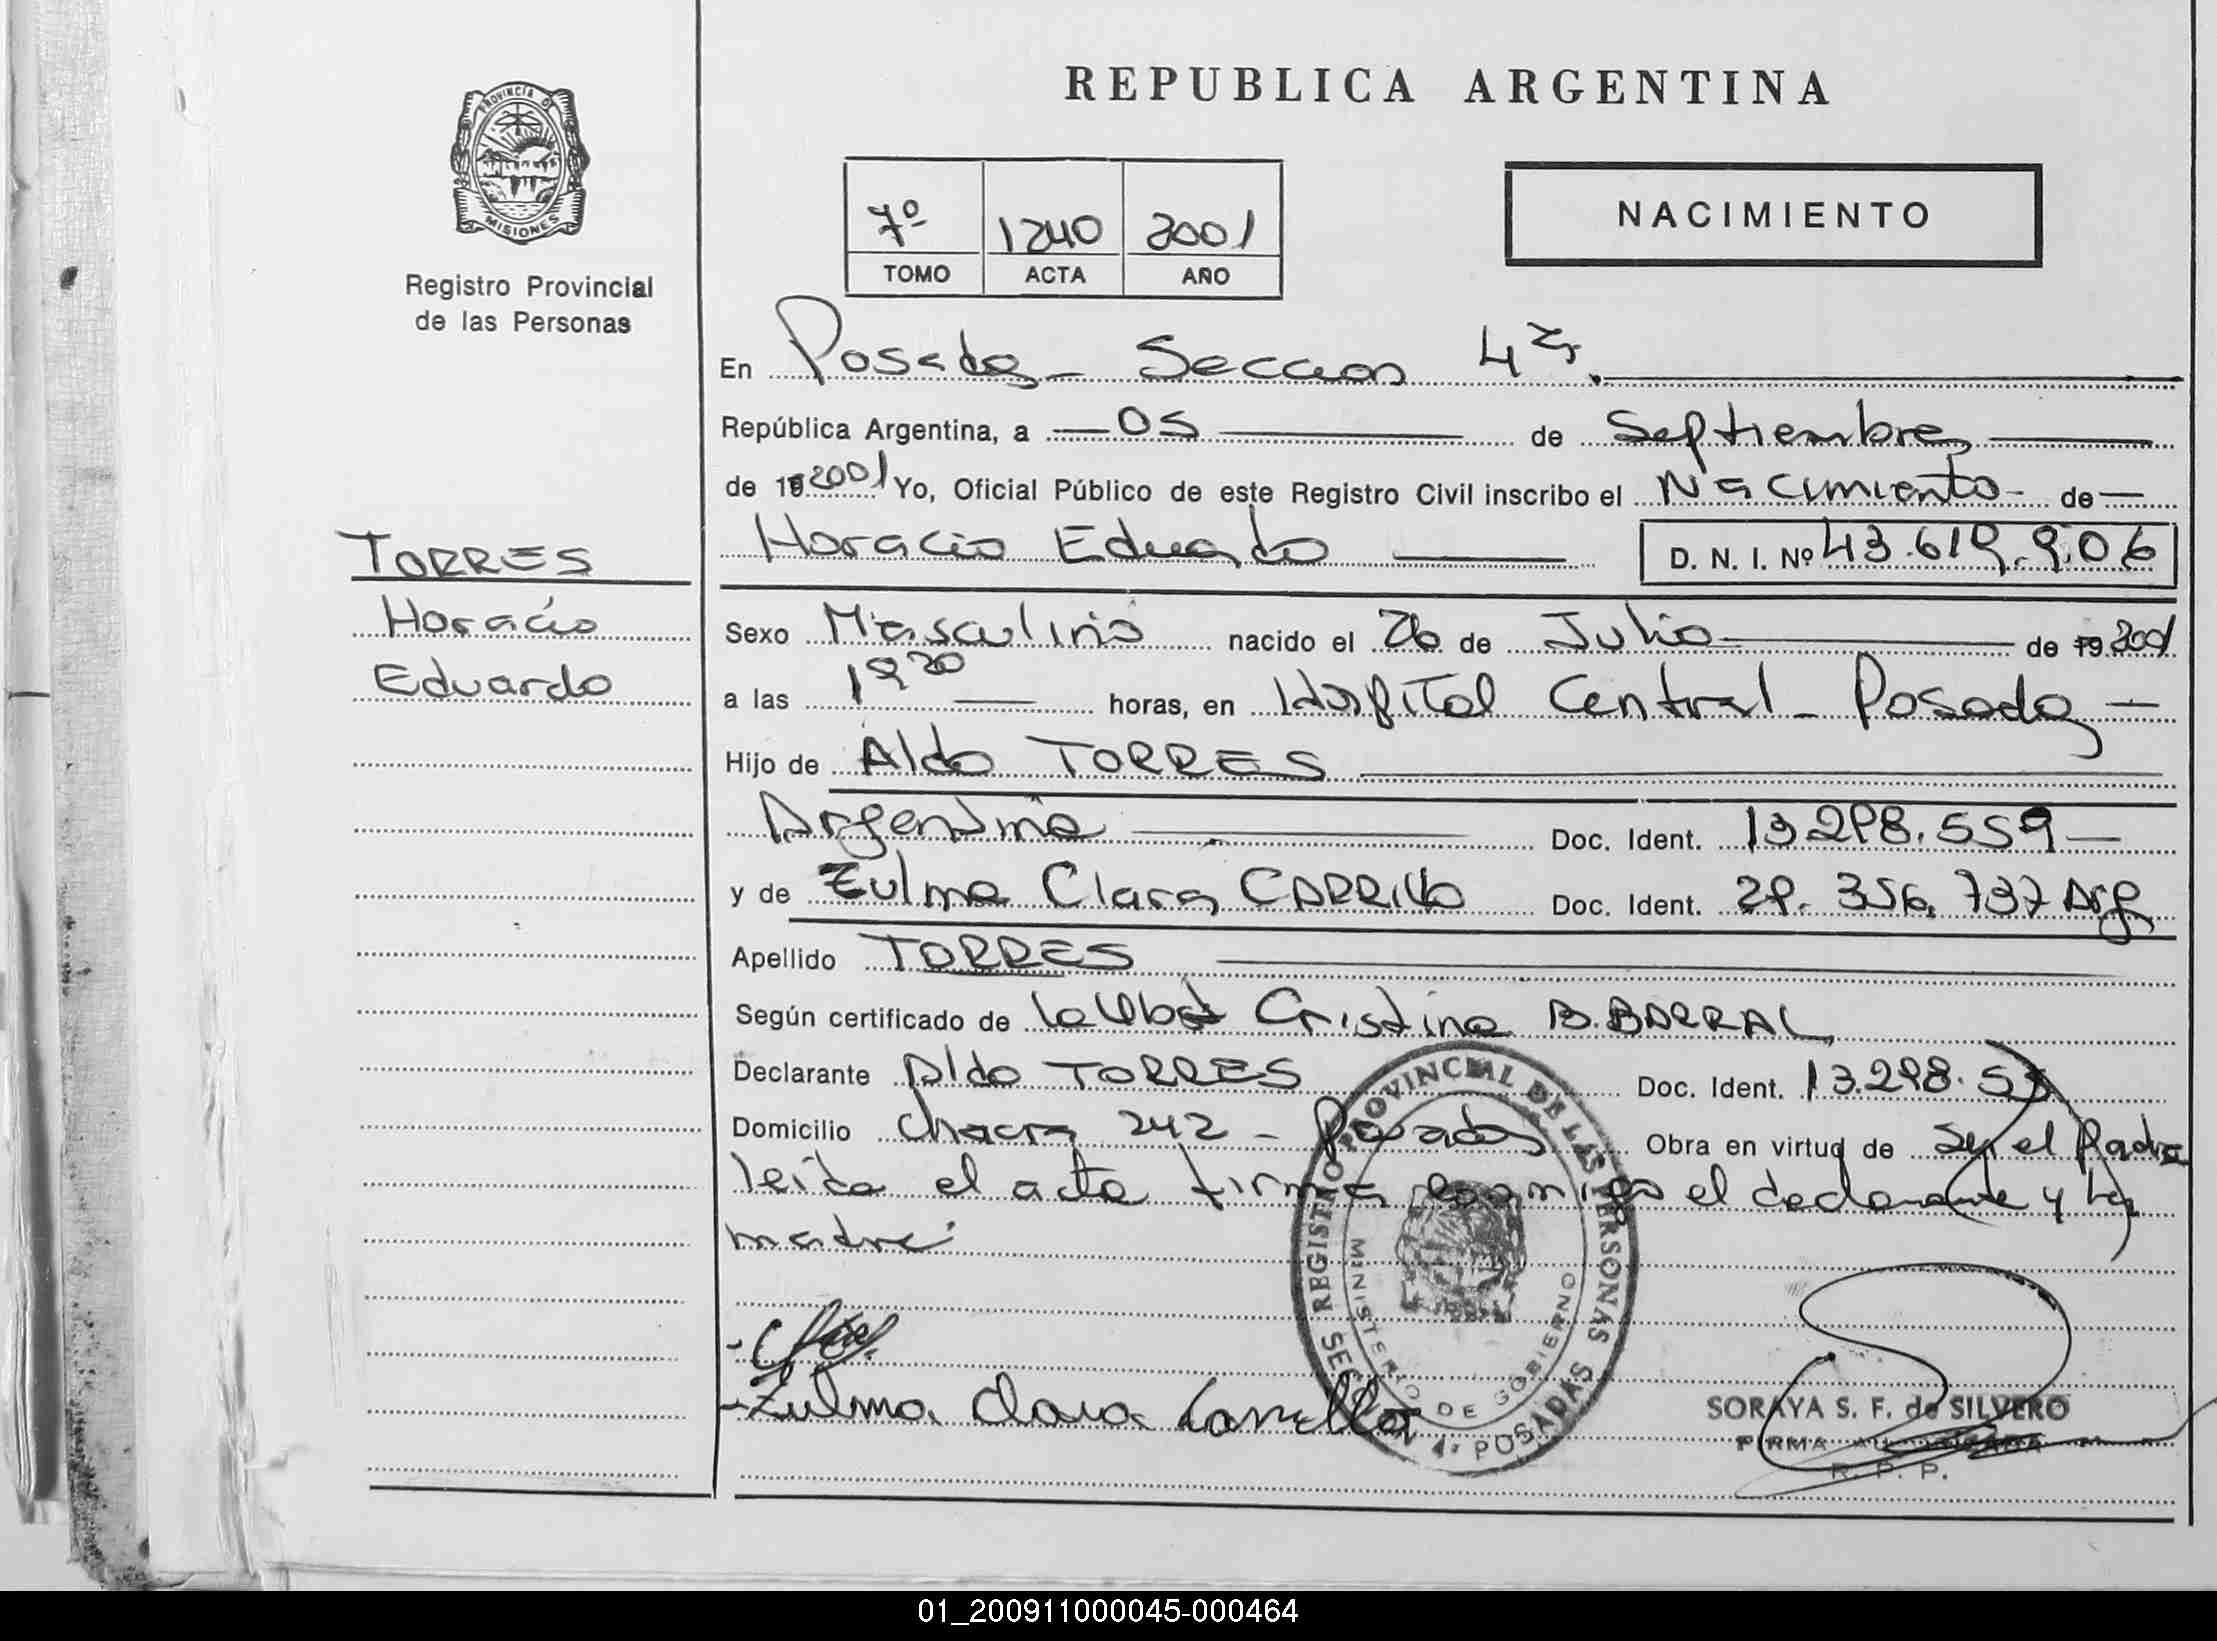 REPUBLICA ARGENTINA
PROVINCIA D
MISIONES
Registro Provincial
de las Personas
7º 1240 2001
TOMO ACTA AÑO
NACIMIENTO
En Posadas - Seccion 4ª
República Argentina, a 05 de Septiembre
de 19 2001 Yo, Oficial Público de este Registro Civil inscribo el Nacimiento de
Horacio Eduardo D. N. I. Nº 43.619.906
TORRES
Horacio
Eduardo
Sexo Masculino nacido el 26 de Julio de 19 2001
a las 19 20 horas, en Hospital Central - Posadas
Hijo de Aldo TORRES
Argentina Doc. Ident. 13.298.559
y de Zulma Clara CARRILLO Doc. Ident. 29.356.737 Arg
Apellido TORRES
Según certificado de la Obst Cristina B. BARRAL
Declarante Aldo TORRES Doc. Ident. 13.298.55
Domicilio Chacra 242 - Posadas Obra en virtud de ser el Padre
leida el acta firma conmigo el declarante y la
madre
Zulma Clara Carrillo
REGISTRO PROVINCIAL DE LAS PERSONAS
MINISTERIO DE GOBIERNO
SECCION 4ª POSADAS
SORAYA S. F. de SILVERO
FIRMA AUTORIZADA
R. P. P.
01_200911000045-000464